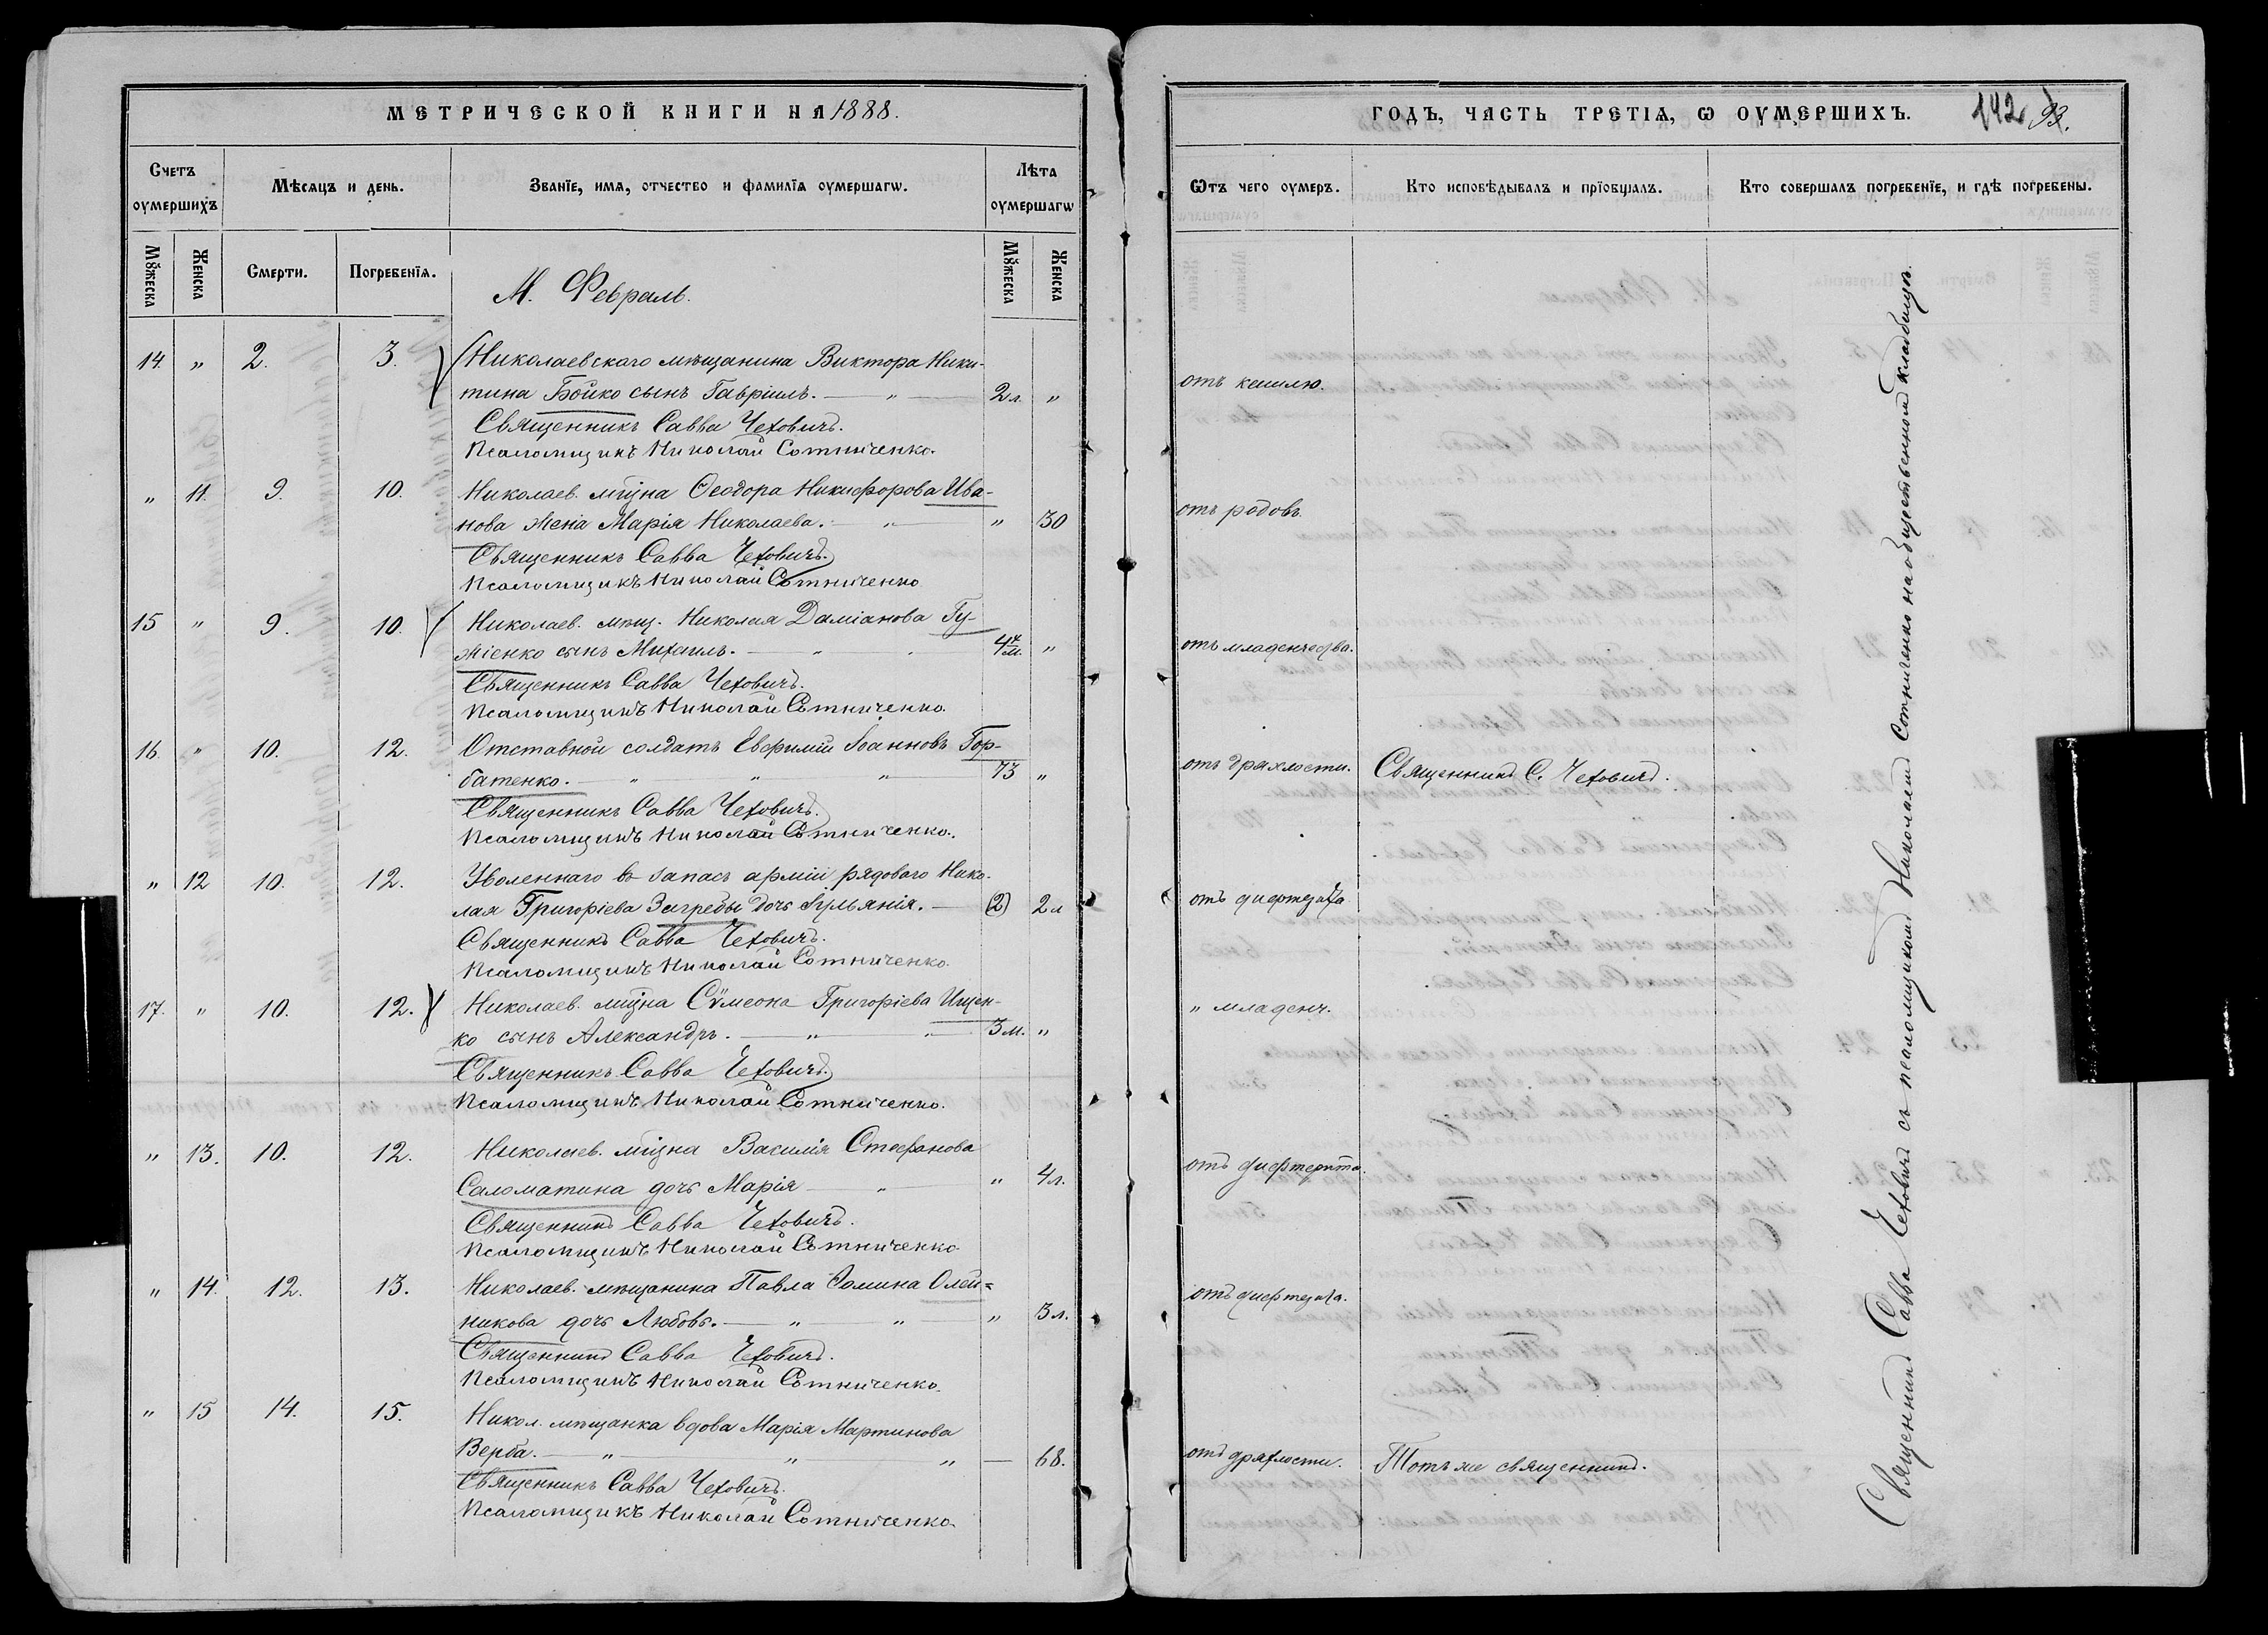 МЕТРИЧЕСКОЙ КНИГИ НА 1888.
Счетъ оумершихъ
Мѣсяцъ и день.
Званїе, имя, отчество и фамилїя оумершагѡ.
Лѣта оумершагѡ
Мꙋжеска
Женска
Смерти.
Погребенїя.
Мꙋжеска
Женска
М. Февраль.
14. " 2. 3. Николаевскаго мѣщанина Виктора Ники-
тина Бойко сынъ Гавріилъ. — " — 2 л. "
Священникъ Савва Чеховичъ.
Псаломщикъ Николай Сотниченко.
" 11. 9. 10. Николаев. мщна Ѳеодора Никифорова Ива-
нова жена Марія Николаева. — " " 30
Священникъ Савва Чеховичъ.
Псаломщикъ Николай Сотниченко
15 " 9. 10. Николаев. мѣщ. Николая Даміанова Гу-
жіенко сынъ Михаилъ. — " 4 м. "
Священникъ Савва Чеховичъ.
Псаломщикъ Николай Сотниченко.
16 " 10. 12. Отставной солдатъ Евфимій Іоанновъ Гор-
батенко. — " " " 73 "
Священникъ Савва Чеховичъ.
Псаломщикъ Николай Сотниченко.
" 12 10. 12. Уволеннаго в запасъ арміи рядоваго Нико-
лая Григоріева Загребы дочь Іульянія. — (2) 2 л
Священникъ Савва Чеховичъ.
Псаломщикъ Николай Сотниченко.
17. " 10. 12. Николаев. мщна Сѵмеона Григоріева Ищен-
ко сынъ Александръ. — " " 3 м. "
Священникъ Савва Чеховичъ.
Псаломщикъ Николай Сотниченко.
" 13. 10. 12. Николаев. мщна Василія Стефанова
Саломатина дочь Марія — " " 4 л.
Священникъ Савва Чеховичъ.
Псаломщикъ Николай Сотниченко.
" 14. 12. 13. Николаев. мѣщанина Павла Ѳомина Олей=
никова дочь Любовь. — " — " " 3 л.
Священникъ Савва Чеховичъ.
Псаломщикъ Николай Сотниченко.
" 15 14. 15. Никол. мѣщанка вдова Марія Мартинова
Верба. — " " " — 68.
Священникъ Савва Чеховичъ.
Псаломщикъ Николай Сотниченко.
ГОДЪ, ЧАСТЬ ТРЕТІѦ, Ѡ ОУМЕРШИХЪ. 142 93.
Ѿтъ чего оумеръ.
Кто исповѣдывалъ и прїобщалъ.
Кто совершалъ погребенїе, и гдѣ погребены.
отъ кашлю.
отъ родовъ.
отъ младенчества.
отъ драхлости. Священникъ С. Чеховичъ.
отъ дифтерита
" младенч.
отъ дифтерита.
отъ дифтерита.
отъ драхлости. Тотъ же священникъ.
Священникъ Савва Чеховичъ съ псаломщикомъ Николаемъ Сотниченко на общественномъ кладбищѣ.